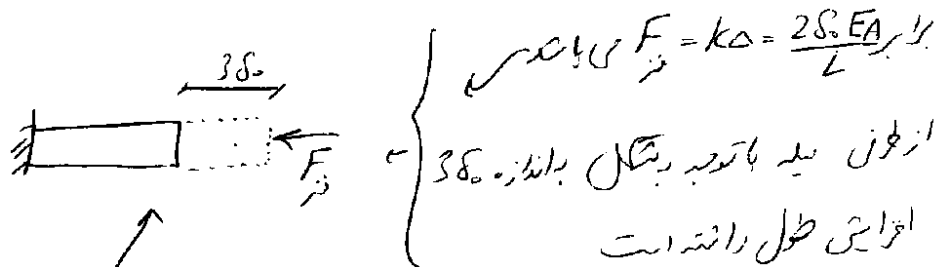 برابر F فنر = kΔ = 2δ₀EA/L می باشد
3δ₀
از طرفی میله با توجه به شکل به اندازه 3δ₀
F فنر
افزایش طول داشته است